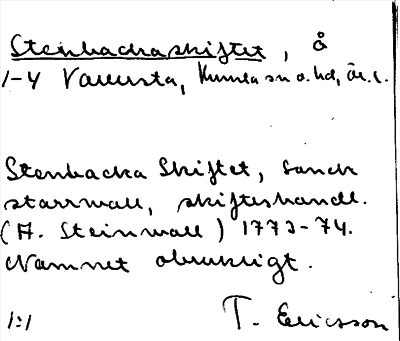 Stenbackaskiftet, å
1-4 Vallersta, Kumla sn o. hd, Är. l.
Stenbacka Skiftet, sanck
starrwall, skifteshandl.
(A. Steinwall) 1773-74.
Namnet obrukligt.
1:1 T. Ericsson